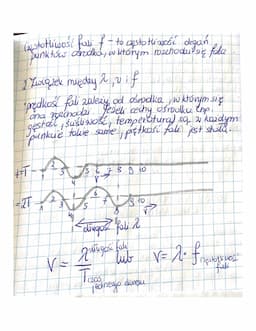 Częstotliwość fali f - to częstotliwość drgań
punktów ośrodka, w którym rozchodzi się fala
2 Związek między λ, v i f
prędkość fali zależy od ośrodka, w którym się
ona rozchodzi. Jeżeli cechy ośrodka (np
gęstość, ściśliwość, temperatura) są w każdym
punkcie takie same, prędkość fali jest stała.
t=T
V
8 9 10
t=2T
9 10
V
długość fali λ
V = λ/T długość fali lub V = λ · f częstotliwość fali
czas jednego okresu